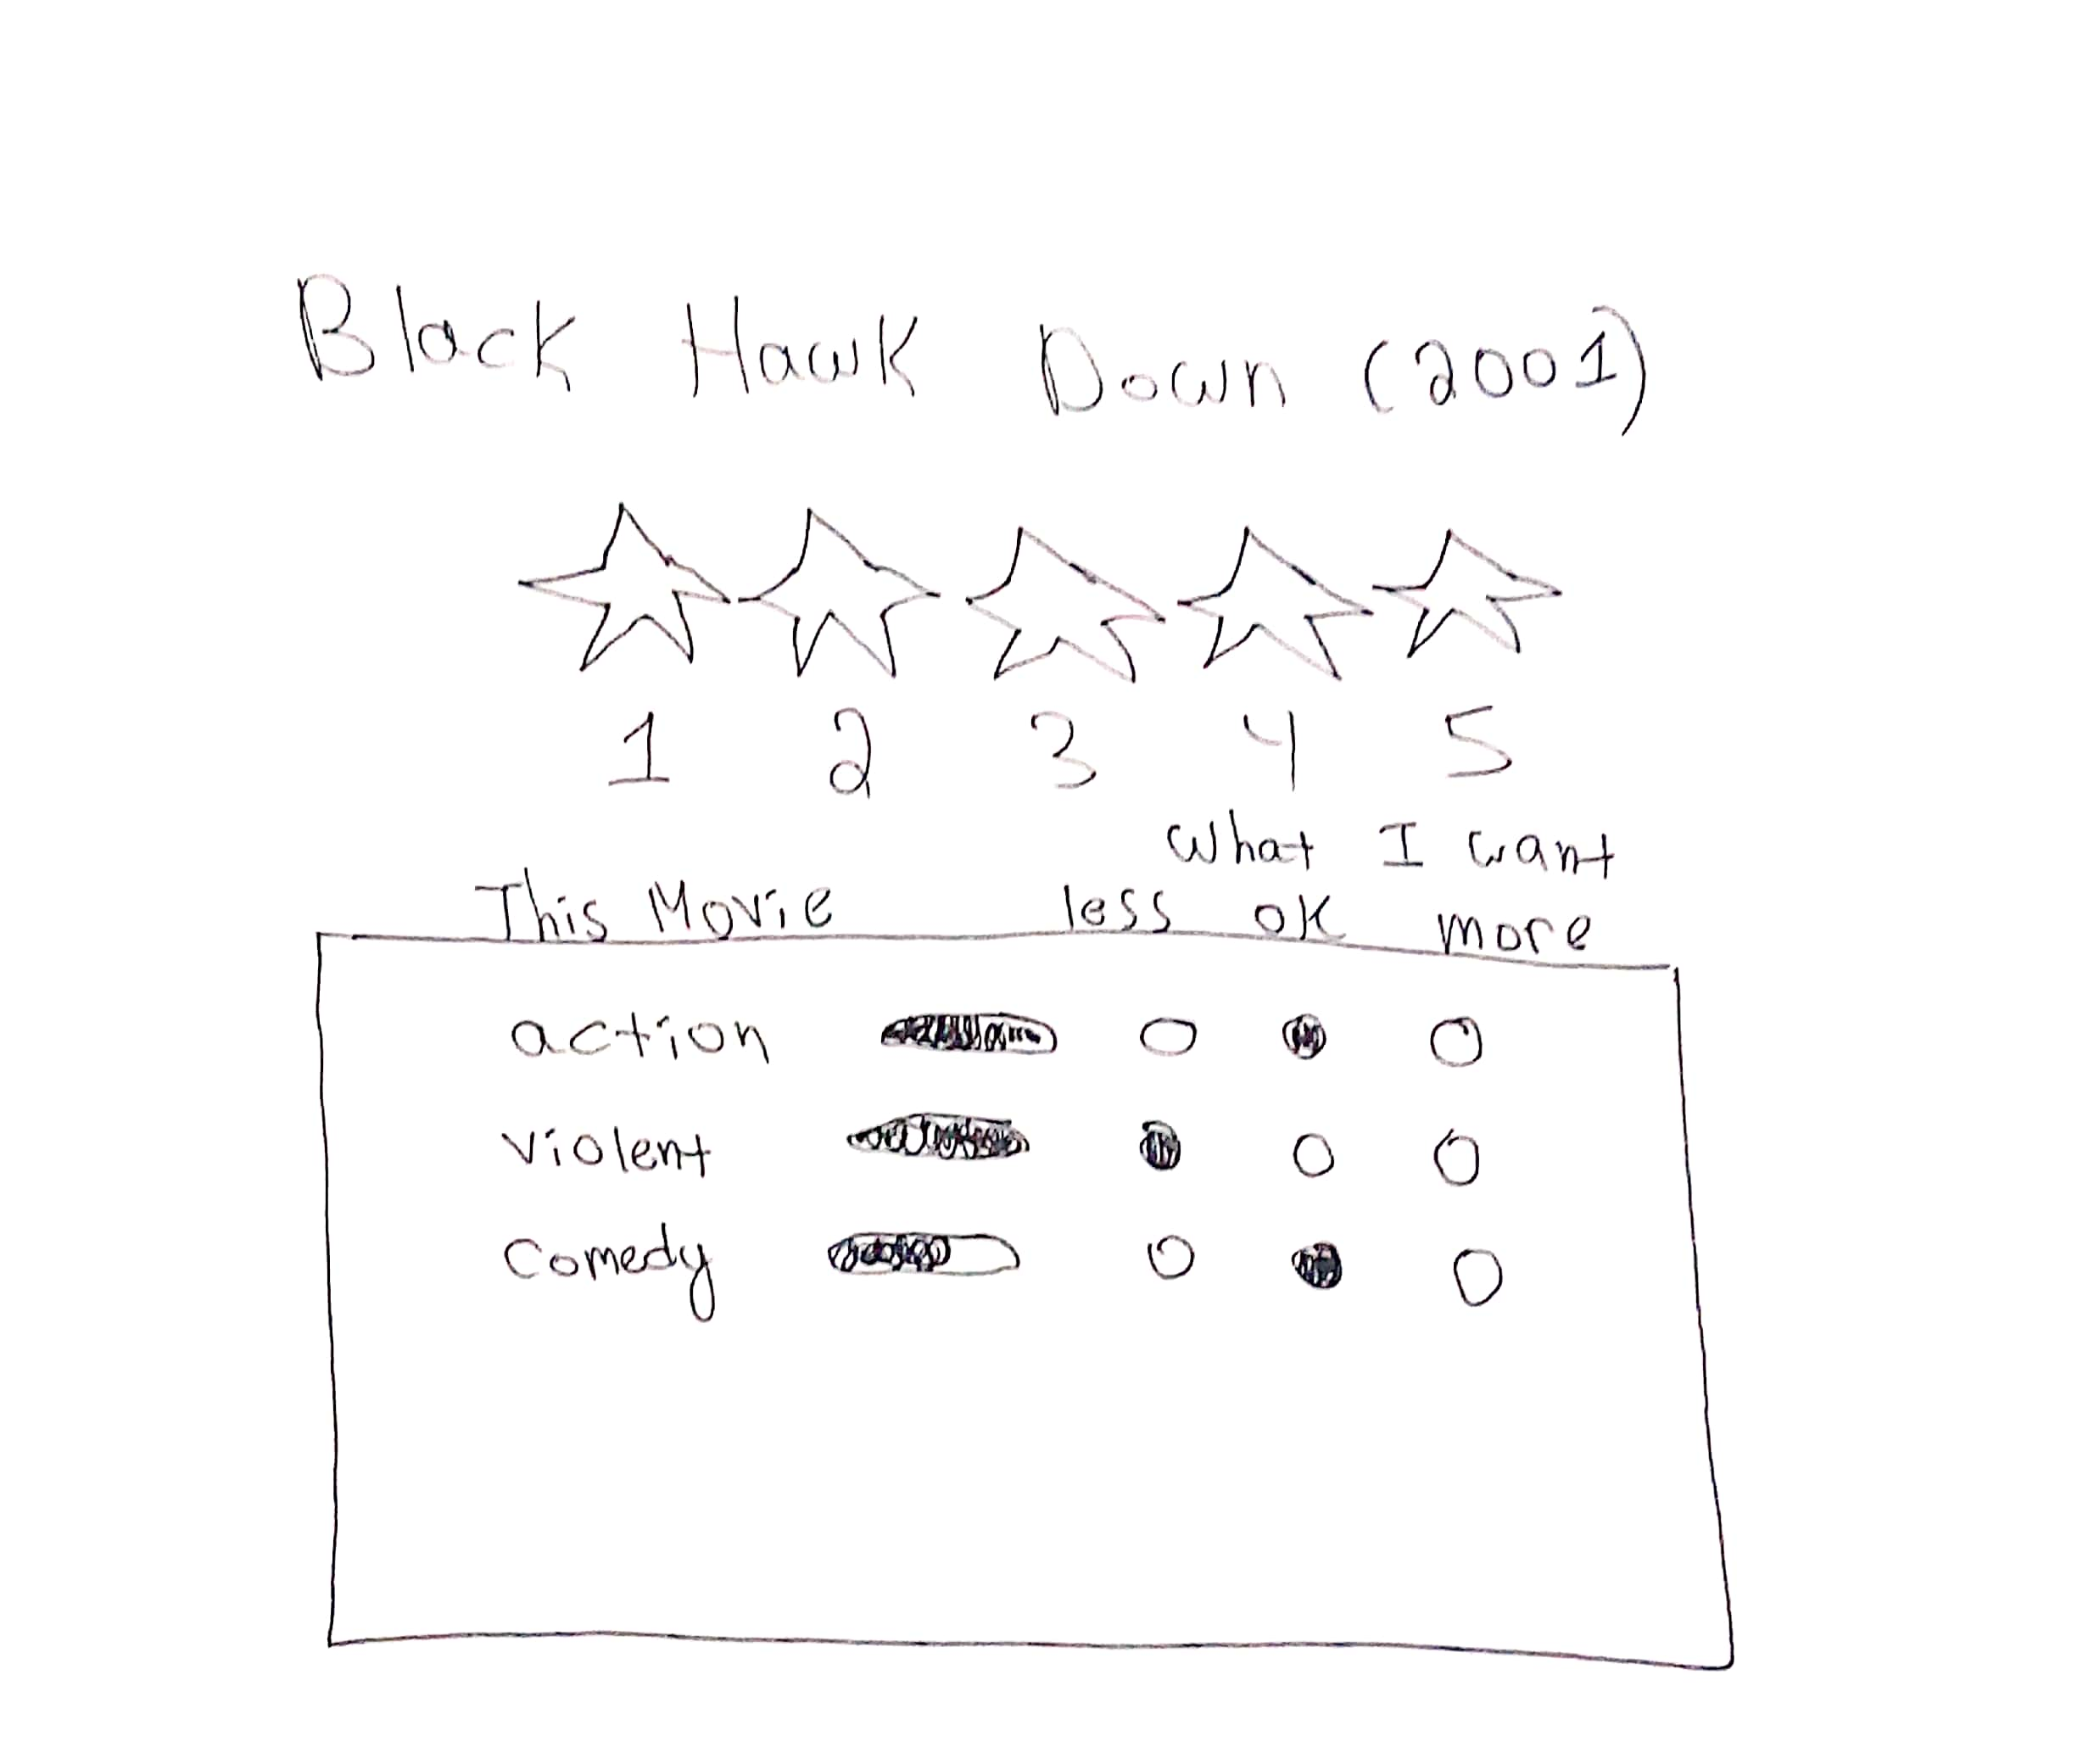 Black Hawk Down (2001)
1 2 3 4 5
What I want
This Movie less ok more
action
violent
Comedy